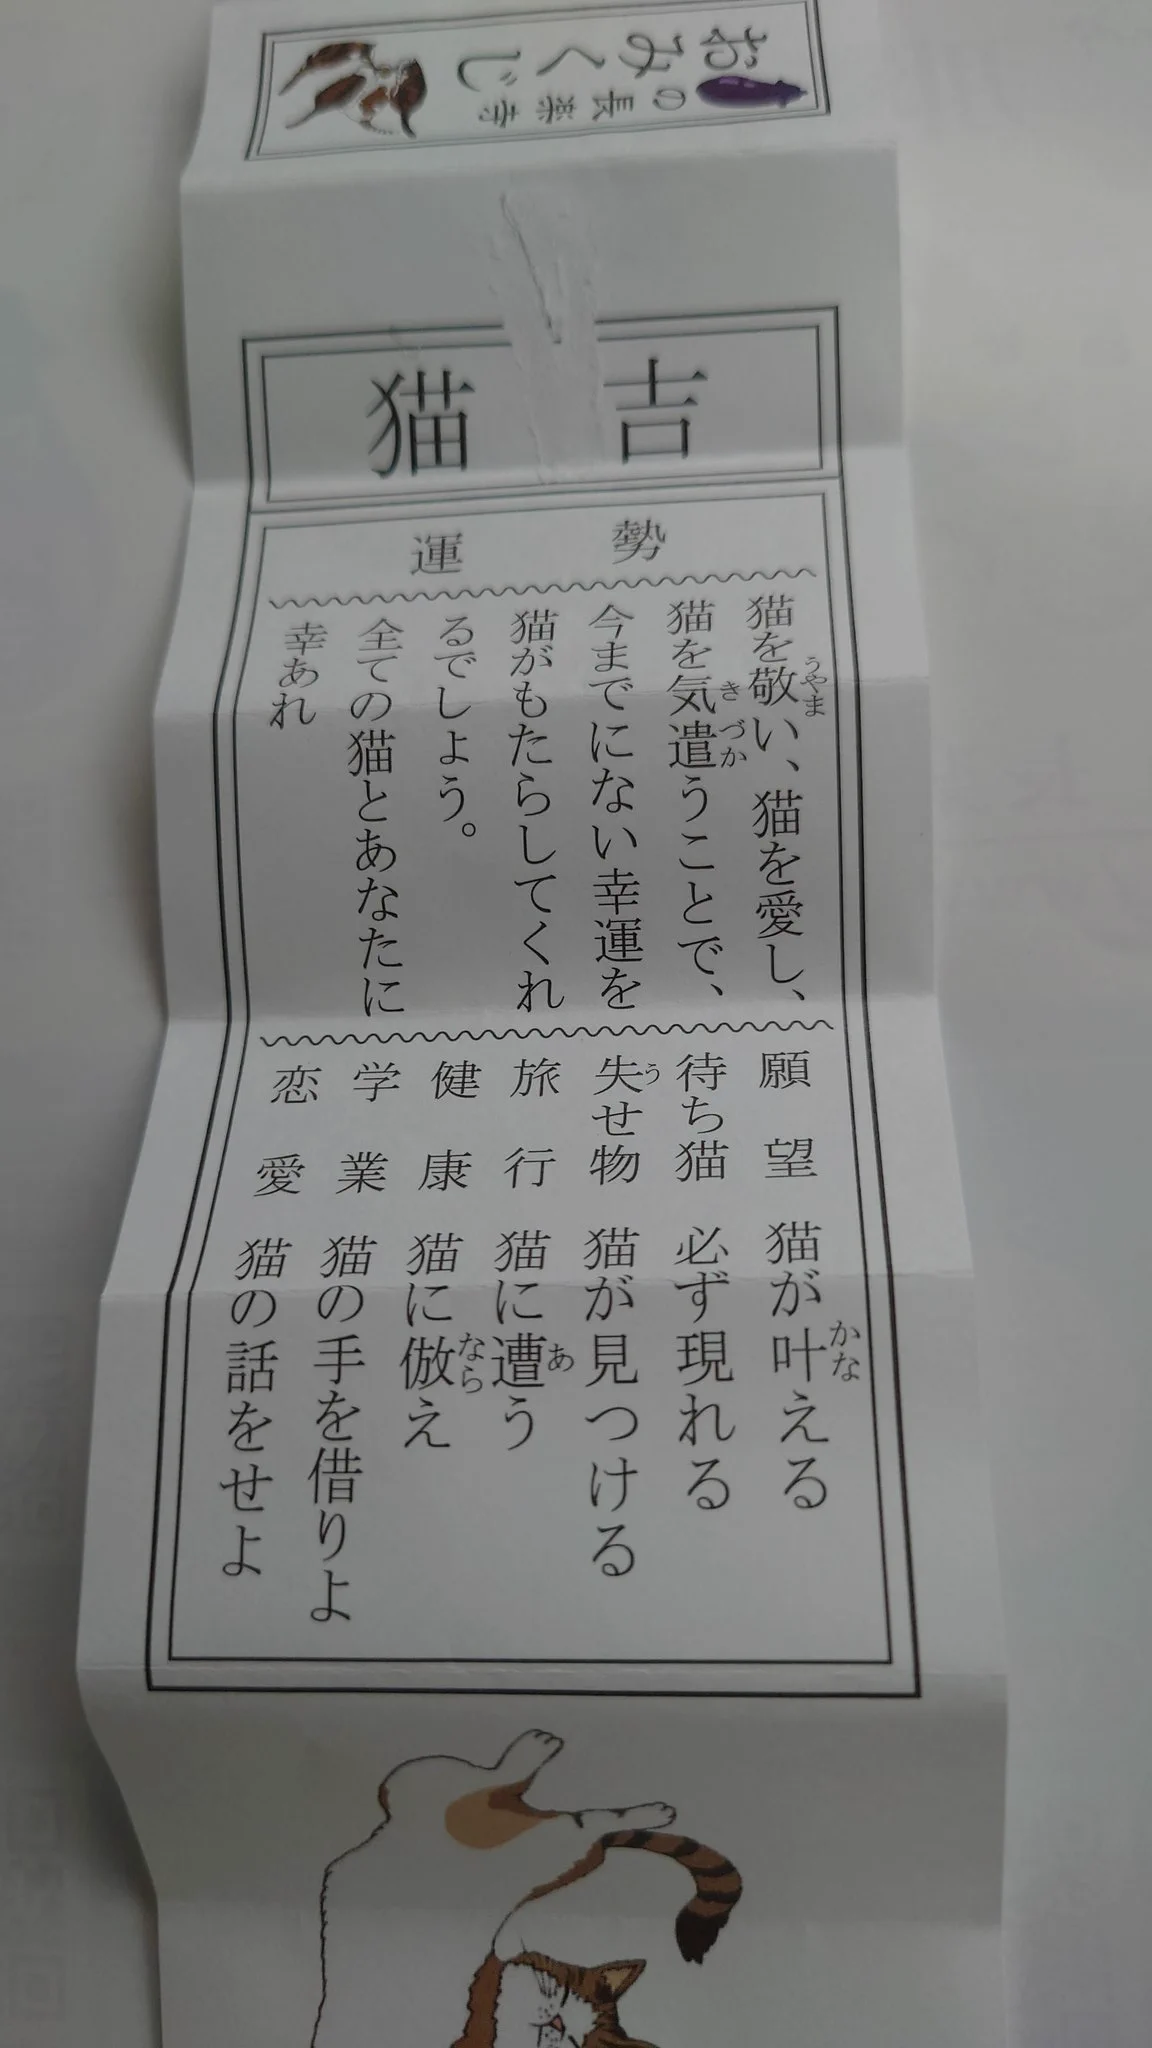 おみくじ
の長楽寺
猫吉
運勢
うやま
猫を敬い、猫を愛し、
きづか
猫を気遣うことで、
今までにない幸運を
猫がもたらしてくれ
るでしょう。
全ての猫とあなたに
幸あれ
かな
願望 猫が叶える
待ち猫 必ず現れる
う
失せ物 猫が見つける
あ
旅行 猫に遭う
なら
健康 猫に倣え
学業 猫の手を借りよ
恋愛 猫の話をせよ